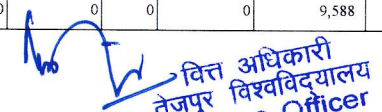 0 0 0 9,588
वित्त अधिकारी
तेजपुर विश्वविद्यालय
Officer